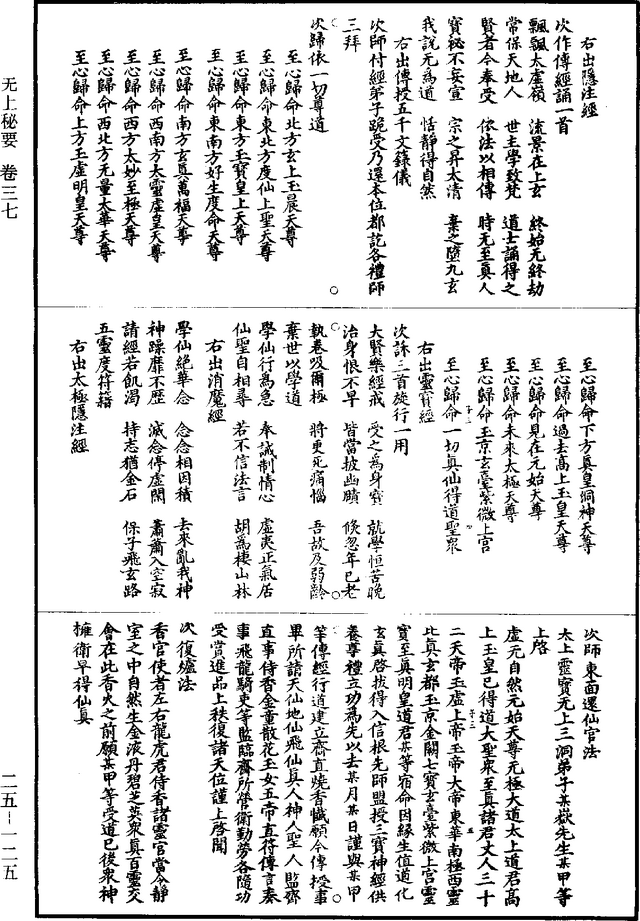 右出隱注經
次作傳經誦一首
飄飄太虛嶺　流景在上玄　終始无終劫
常保天地人　世主學致梵　道士誦得之
賢者令奉受　依法以相傳　時无至真人
寶祕不妄宣　宗之昇太清　棄之墮九玄
我說无為道　恬靜得自然
右出傳授五千文籙儀
次師付經弟子跪受乃還本位都訖各禮師
三拜
次歸依一切尊道
至心歸命北方玄上玉晨天尊
至心歸命東北方度仙上聖天尊
至心歸命東方玉寶皇上天尊
至心歸命東南方好生度命天尊
至心歸命南方玄真萬福天尊
至心歸命西南方太靈虛皇天尊
至心歸命西方太妙至極天尊
至心歸命西北方无量太華天尊
至心歸命上方玉虛明皇天尊
至心歸命下方真皇洞神天尊
至心歸命過去高上玉皇天尊
至心歸命見在元始天尊
至心歸命未來太極天尊
至心歸命玉京玄臺紫微上宮
至心歸命一切真仙得道聖衆
右出靈寶經
次詠三首旋行一用
大賢樂經戒　受之為身寶　就學恒苦晚
治身恨不早　皆當披幽賾　倏忽年已老
執卷吸爾極　將更死痛惱　吾故及弱齡
棄世以學道
學仙行為急　奉誡制情心　虛夷正氣居
仙聖自相尋　若不信法言　胡為棲山林
右出消魔經
學仙絕華念　念念相因積　去來亂我神
神躁靡不歷　滅念停虛閑　蕭蕭入空寂
請經若飢渴　持志猶金石　保子飛玄路
五靈度符籍
右出太極隱注經
次師東面還仙官法
太上靈寶无上三洞弟子某嶽先生某甲等
上啓
虛无自然元始天尊无極大道太上道君高
上玉皇已得道大聖衆至真諸君丈人三十
二天帝玉虛上帝玉帝大帝東華南極西靈
北真玄都玉京金闕七寶玄臺紫微上宮靈
寶至真明皇道君某等宿命因緣生值道化
玄真啓拔得入信根先師盟授三寶神經供
養尊禮立功為先以去某月某日謹與某甲
等傳經行道建立齋直燒香懺願今傳授事
畢所請天仙地仙飛仙真人神人聖人監齋
直事侍香金童散花玉女五帝直符傳言奏
事飛龍騎吏等監臨齋所營衛勤勞各隨功
受賞進品上秩復諸天位謹上啓聞
次復爐法
香官使者左右龍虎君侍香諸靈官當令靜
室之中自然生金液丹碧芝英衆真百靈交
會在此香火之前願某甲等受道已後衆神
擁衛早得仙真
无上秘要　卷三七
二五－一二五